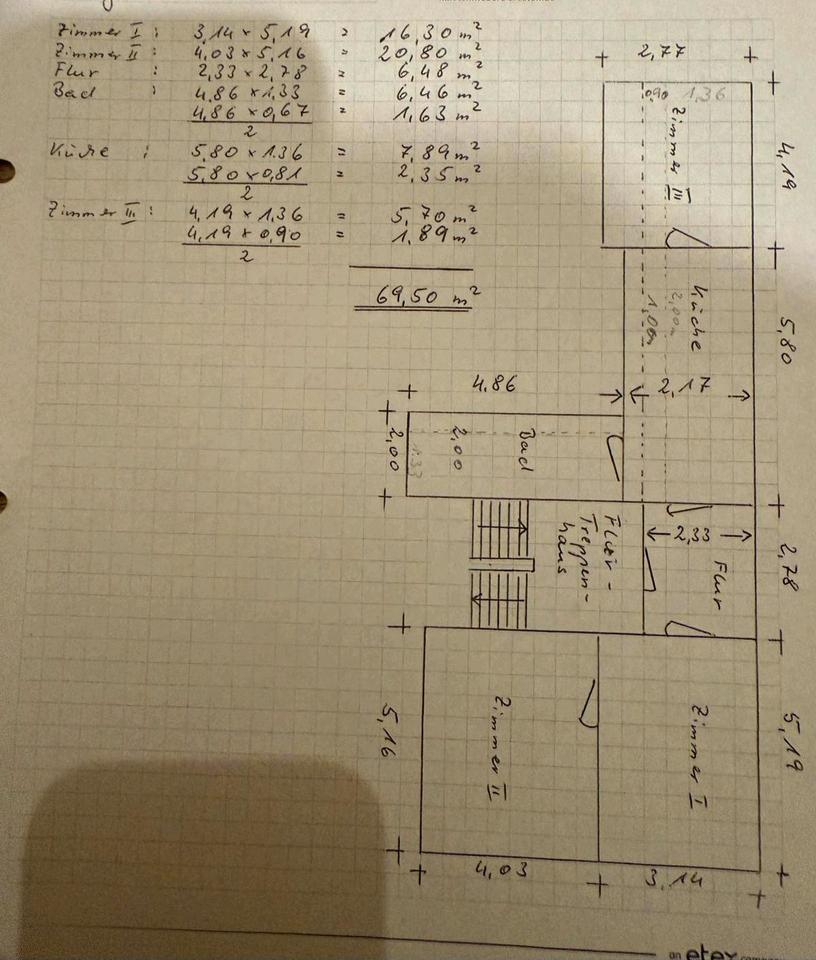 Zimmer I : 3,14 x 5,19 = 16,30 m²
Zimmer II : 4,03 x 5,16 = 20,80 m²
Flur : 2,33 x 2,78 = 6,48 m²
Bad : 4,86 x 1,33 = 6,46 m²
4,86 x 0,67 = 1,63 m²
2
Küche : 5,80 x 1,36 = 7,89 m²
5,80 x 0,81 = 2,35 m²
2
Zimmer III : 4,19 x 1,36 = 5,70 m²
4,19 x 0,90 = 1,89 m²
2
69,50 m²
2,77
0,90 1,36
Zimmer III
4,19
Küche
2,00m
1,00m
5,80
4,86
2,17
2,00
1,33
2,00
Bad
Flur-
Treppen-
haus
2,33
Flur
2,78
5,16
Zimmer II
Zimmer I
5,19
4,03
3,14
an etex